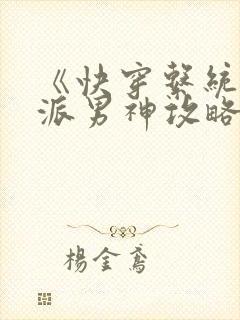 《快穿系統
派男神攻略
楊金鳶